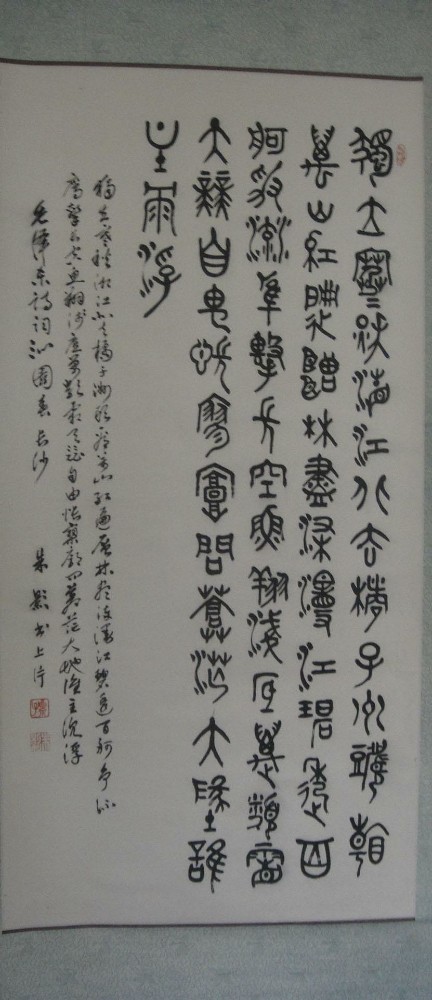 獨立寒秋湘江北去橘子洲頭看
萬山紅遍層林盡染漫江碧透百
舸爭流鷹擊長空魚翔淺底萬類霜
天競自由悵寥廓問蒼茫大地誰
主沉浮
獨立寒秋湘江北去橘子洲頭看萬山紅遍層林盡染漫江碧透百舸爭流
鷹擊長空魚翔淺底萬類霜天競自由悵寥廓問蒼茫大地誰主沉浮
毛澤東詩詞沁園春長沙 朱影書上片